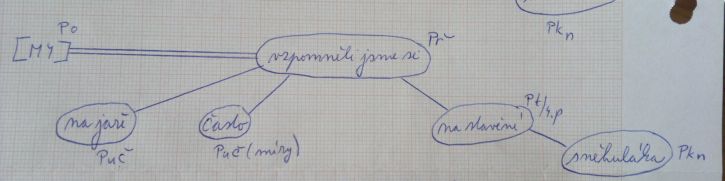 Pkn
Po
[MY]
vzpomněli jsme si
Př
na jaře
Puč
často
Puč (míry)
Pt/4.p
sněhuláka
Pkn